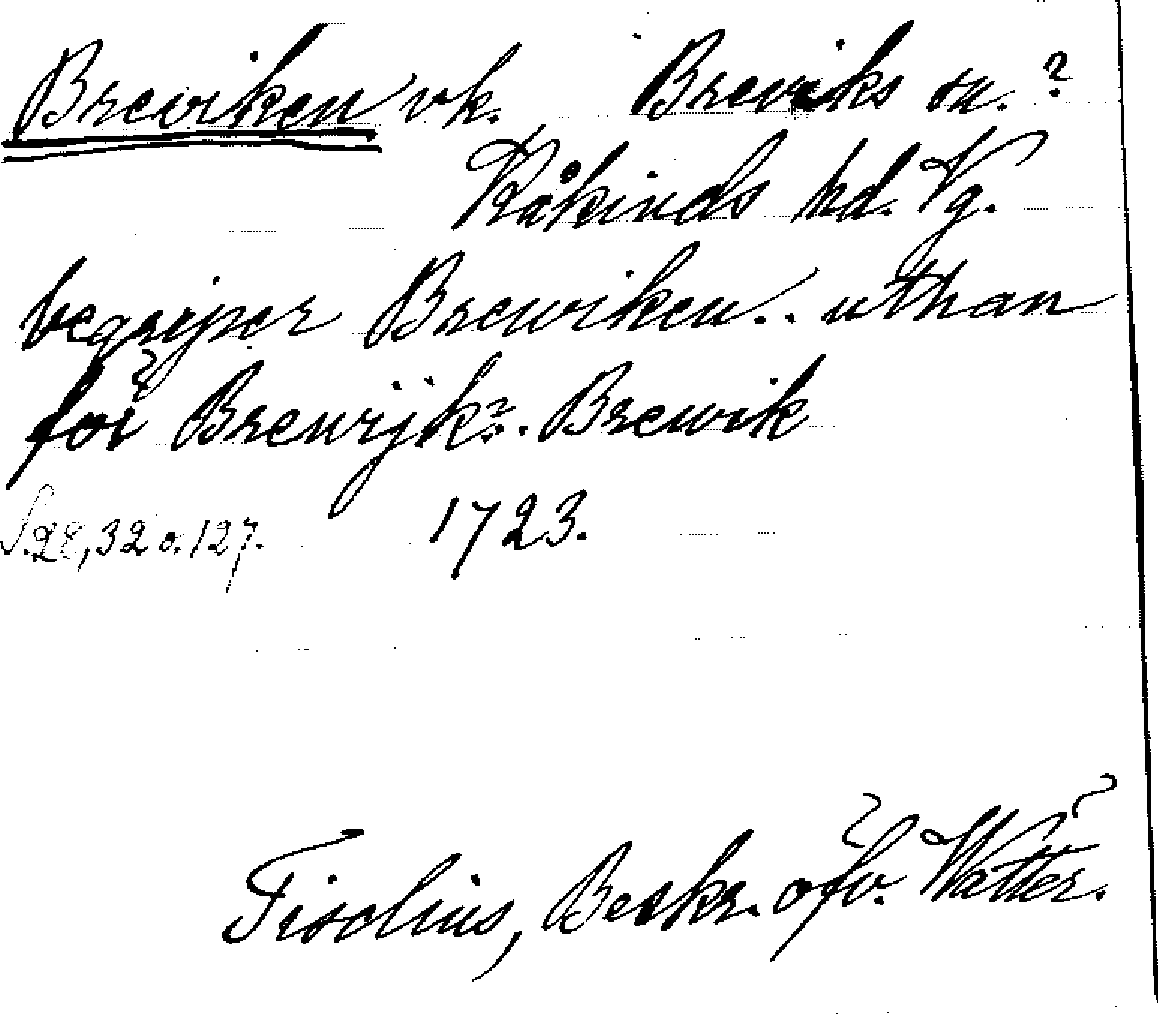 Brewiken vk. Breviks sn.?
Kåkinds hd. Vg.
begriper Brewiken.. uthan
för Brewijk?. Brewik
S. 28, 32 o. 127. 1723.
Tiselius, Beskr. öfv. Wätter.